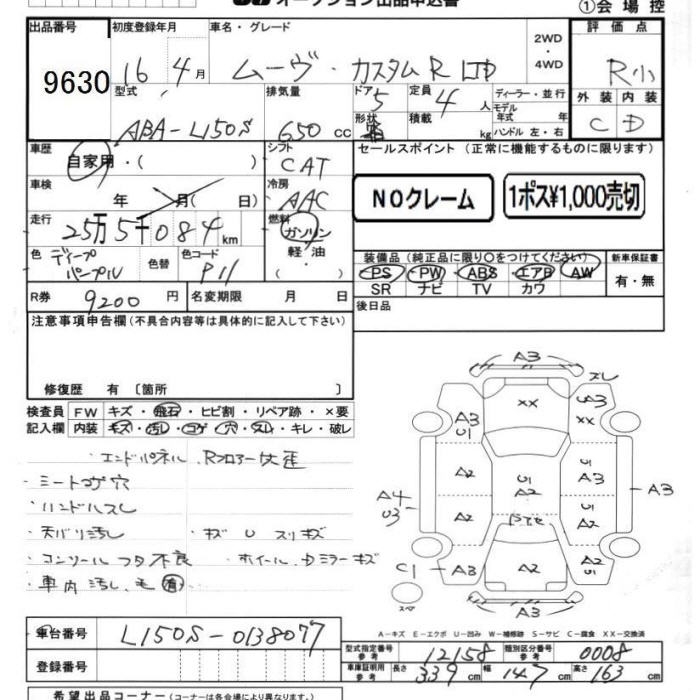 オークション出品申込書
①会場控
出品番号 初度登録年月 車名・グレード 2WD・4WD 評価点
9630 16年 4月 ムーヴ・カスタムR LTD R小
型式 排気量 ドア 定員 ディーラー・並行 外装 内装
ABA-L150S 650cc 5 4人 モデル年式 年 C D
形状 積載 kg ハンドル 左・右
車歴 シフト セールスポイント (正常に機能するものに限ります)
自家用・( ) CAT
車検 冷房 NOクレーム 1ポス¥1,000売切
年 月( 日) AAC
走行 燃料
25万5千084km ガソリン
色 色替 色コード 軽油 装備品 (純正品に限り○をつけてください) 新車保証書
ディープパープル P11 PS PW ABS エアB AW 有・無
SR ナビ TV カワ
R券 9200円 名変期限 月 日 後日品
注意事項申告欄(不具合内容等は具体的に記入して下さい)
修復歴 有 〔箇所 〕
検査員 FW キズ・飛石・ヒビ割・リペア跡・×要
記入欄 内装 キズ・汚レ・コゲ・穴・スレ・キレ・破レ
・エンドパネル、Rフロアー大歪
・シートコゲ穴
・ハンドルスレ
・天バリ汚レ ・キズ U スリキズ
・コンソールフタ不良 ・ホイール、ドミラーキズ
・車内汚レ、毛有
A3
スレ
XX
A3 U1
A3
XX
A2
U1 A2
A3 U1
A3
A4 U3
A2
A2
C1
A3
A2
A2 U1
スペア
A3
A-キズ E-エクボ U-凹み W-補修跡 S-サビ C-腐食 XX-交換済
車台番号 L150S-0138077
型式指定番号 参考 12158 類別区分番号 参考 0008
登録番号
車庫証明用 参考 長さ 339 cm 幅 147 cm 高さ 163 cm
希望出品コーナー (コーナーは各会場により異なります。)